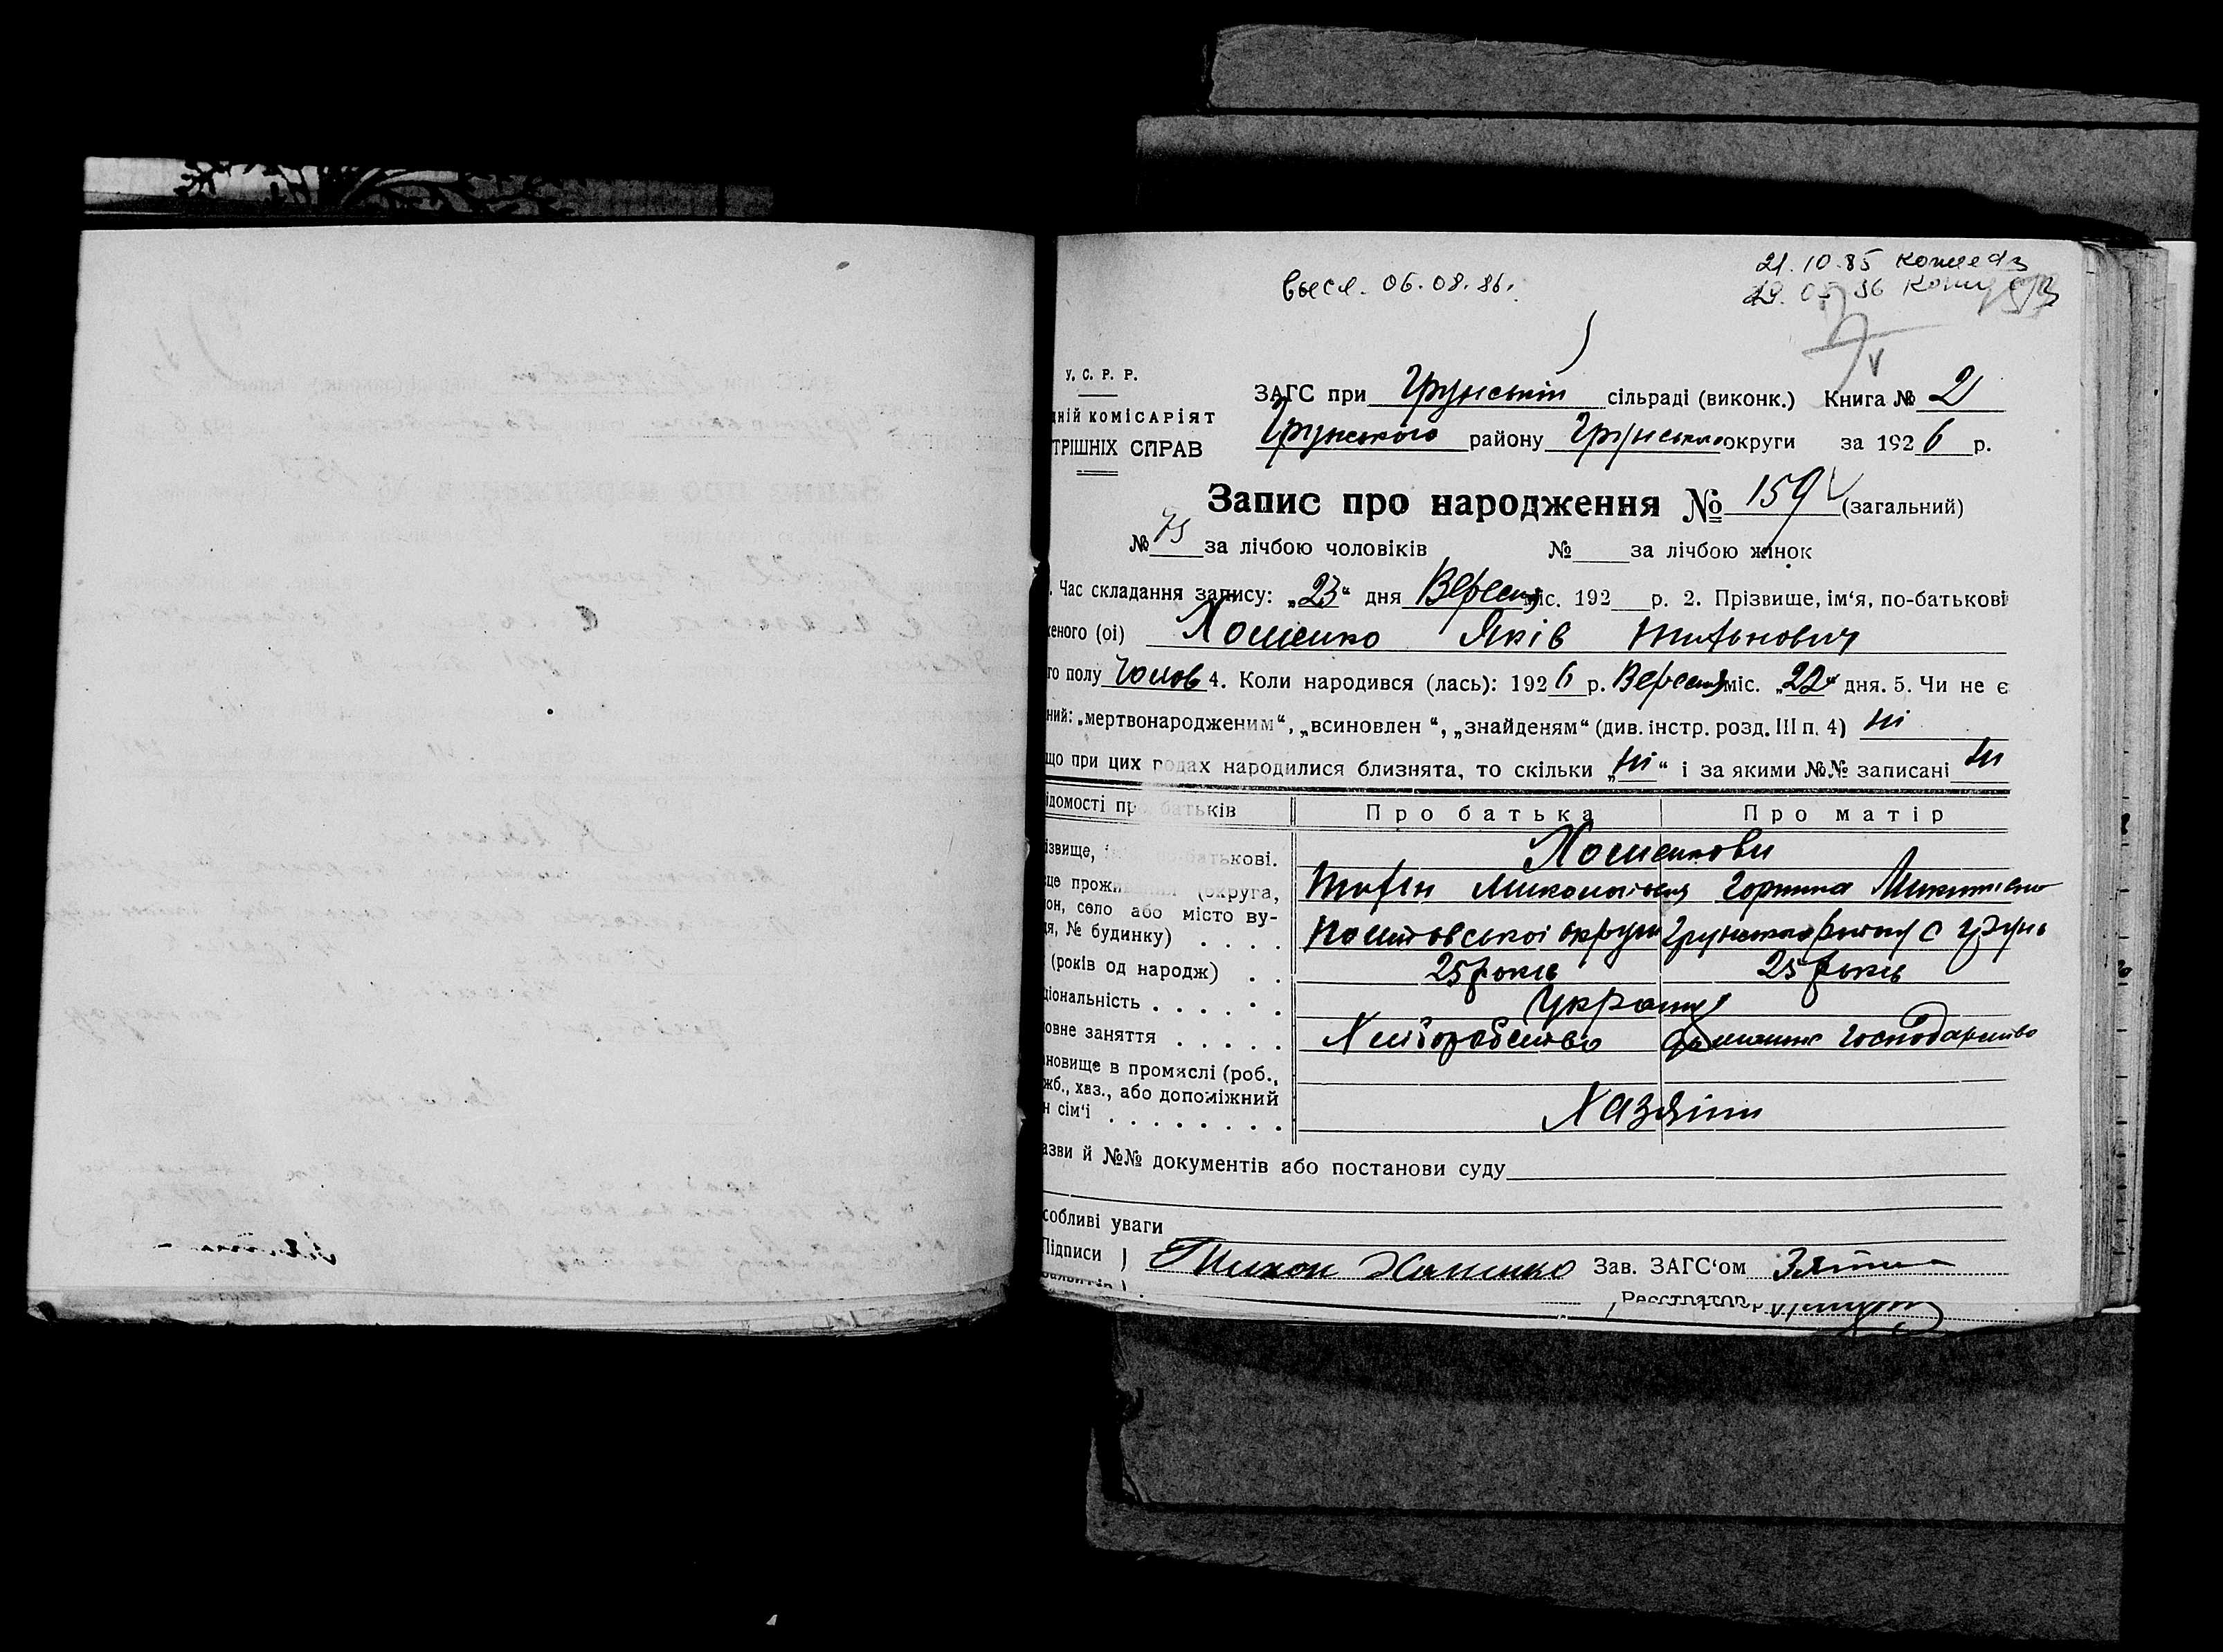 высл. 06.08.86г.
21.10.85 копия
29. 86
У. С. Р. Р.
ЗАГС при Грунській сільраді (виконк.) Книга № 2
дній КОМІСАРІЯТ
Грунського району Грунської округи за 1926 р.
ТРІШНІХ СПРАВ
Запис про народження № 159 (загальний)
№ 75 за лічбою чоловіків № за лічбою жінок
. Час складання запису: „23“ дня Вересня міс. 192 р. 2. Прізвище, ім‘я, по-батькові
женого (ої) Хоменко Яків
го полу Чолов 4. Коли народився (лась): 1926 р. Вересня міс. „22“ дня. 5. Чи не є
ний: „мертвонародженим“, „всиновлен “, „знайденям“ (див. інстр. розд. III п. 4) ні
що при цих родах народилися близнята, то скільки „ні“ і за якими №№ записані ні
ідомості про батьків Про батька Про матір
ізвище, ім‘я, по-батькові. Хоменкови
Миколаїович Горпина
це проживання (округа,
он, село або місто ву-
я, № будинку) . . . . Полтовської округи Грунського району с Грунь
(років од народж) . . 25 років 25 років
ціональність . . . . . .
овне заняття . . . . . Хліборобство домашнє господарство
новище в промяслі (роб.,
жб., хаз., або допоміжний
н сім‘ї . . . . . . . . Хазяїни
азви й №№ документів або постанови суду
собливі уваги
Підписи } Зав. ЗАГС‘ом
Реєстратор